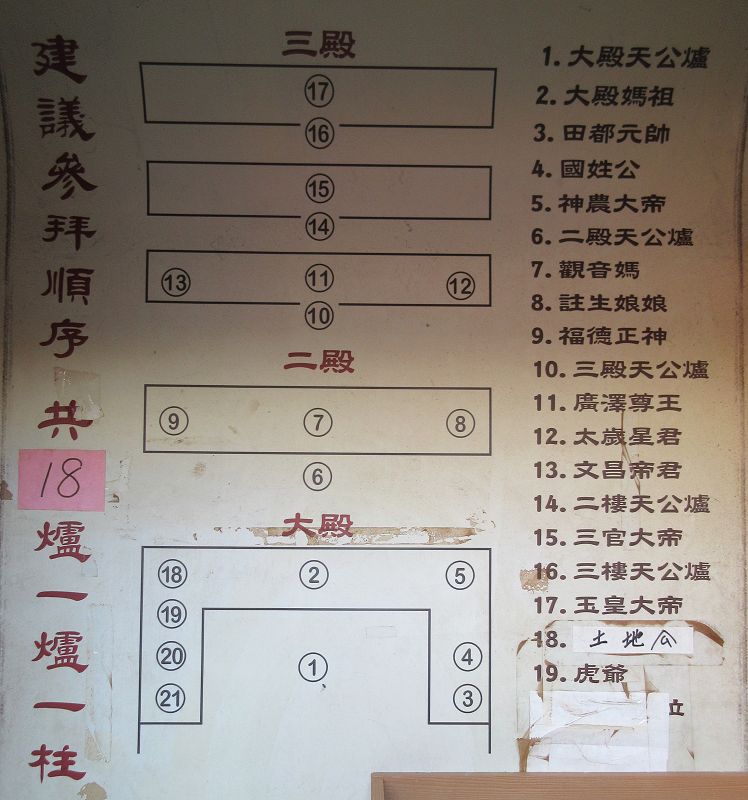 建議參拜順序 共18爐一爐一柱
三殿
17
16
15
14
13 11 12
10
二殿
9 7 8
6
大殿
18 2 5
19
20 1 4
21 3
1. 大殿天公爐
2. 大殿媽祖
3. 田都元帥
4. 國姓公
5. 神農大帝
6. 二殿天公爐
7. 觀音媽
8. 註生娘娘
9. 福德正神
10. 三殿天公爐
11. 廣澤尊王
12. 太歲星君
13. 文昌帝君
14. 二樓天公爐
15. 三官大帝
16. 三樓天公爐
17. 玉皇大帝
18. 土地公
19. 虎爺
立